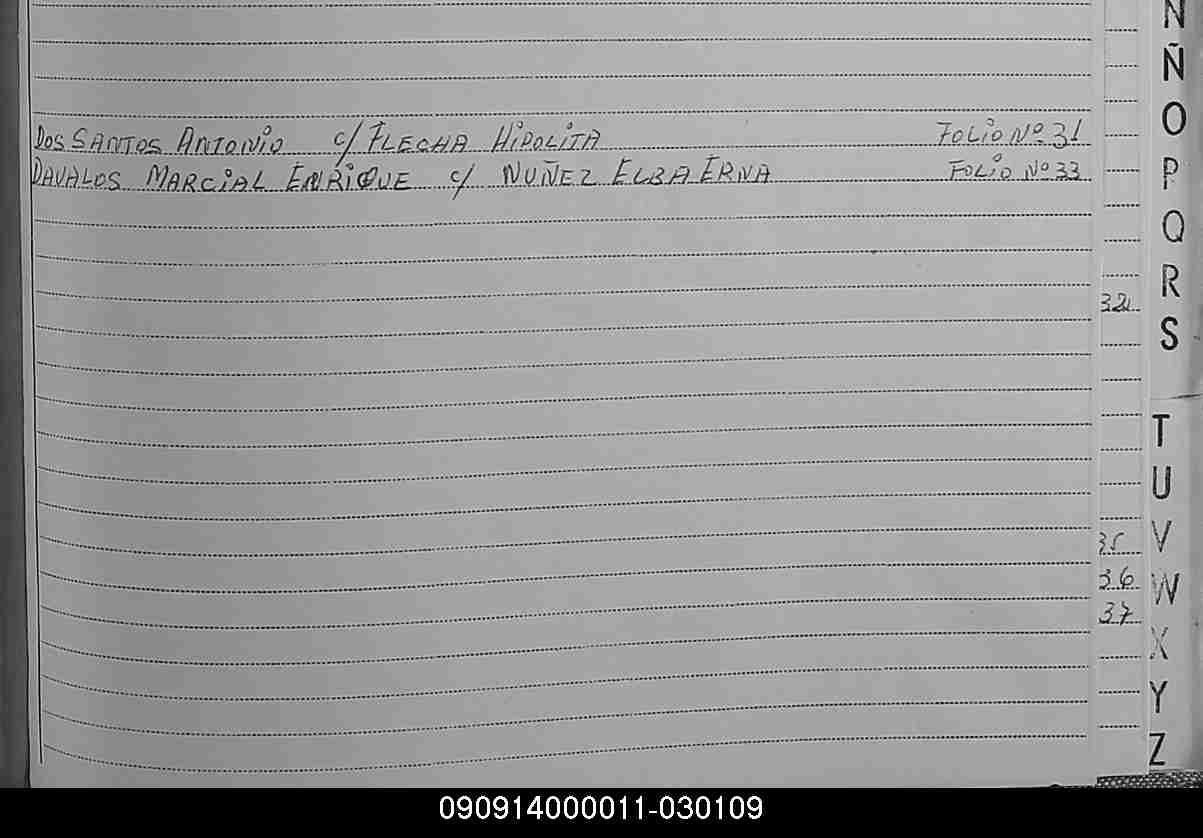 DOS SANTOS ANTONIO c/ FLECHA HIPOLITA FOLIO Nº 31
DAVALOS MARCIAL ENRIQUE c/ NUÑEZ ELBA ERNA FOLIO Nº 33
32
35
36
37
N
Ñ
O
P
Q
R
S
T
U
V
W
X
Y
Z
090914000011-030109